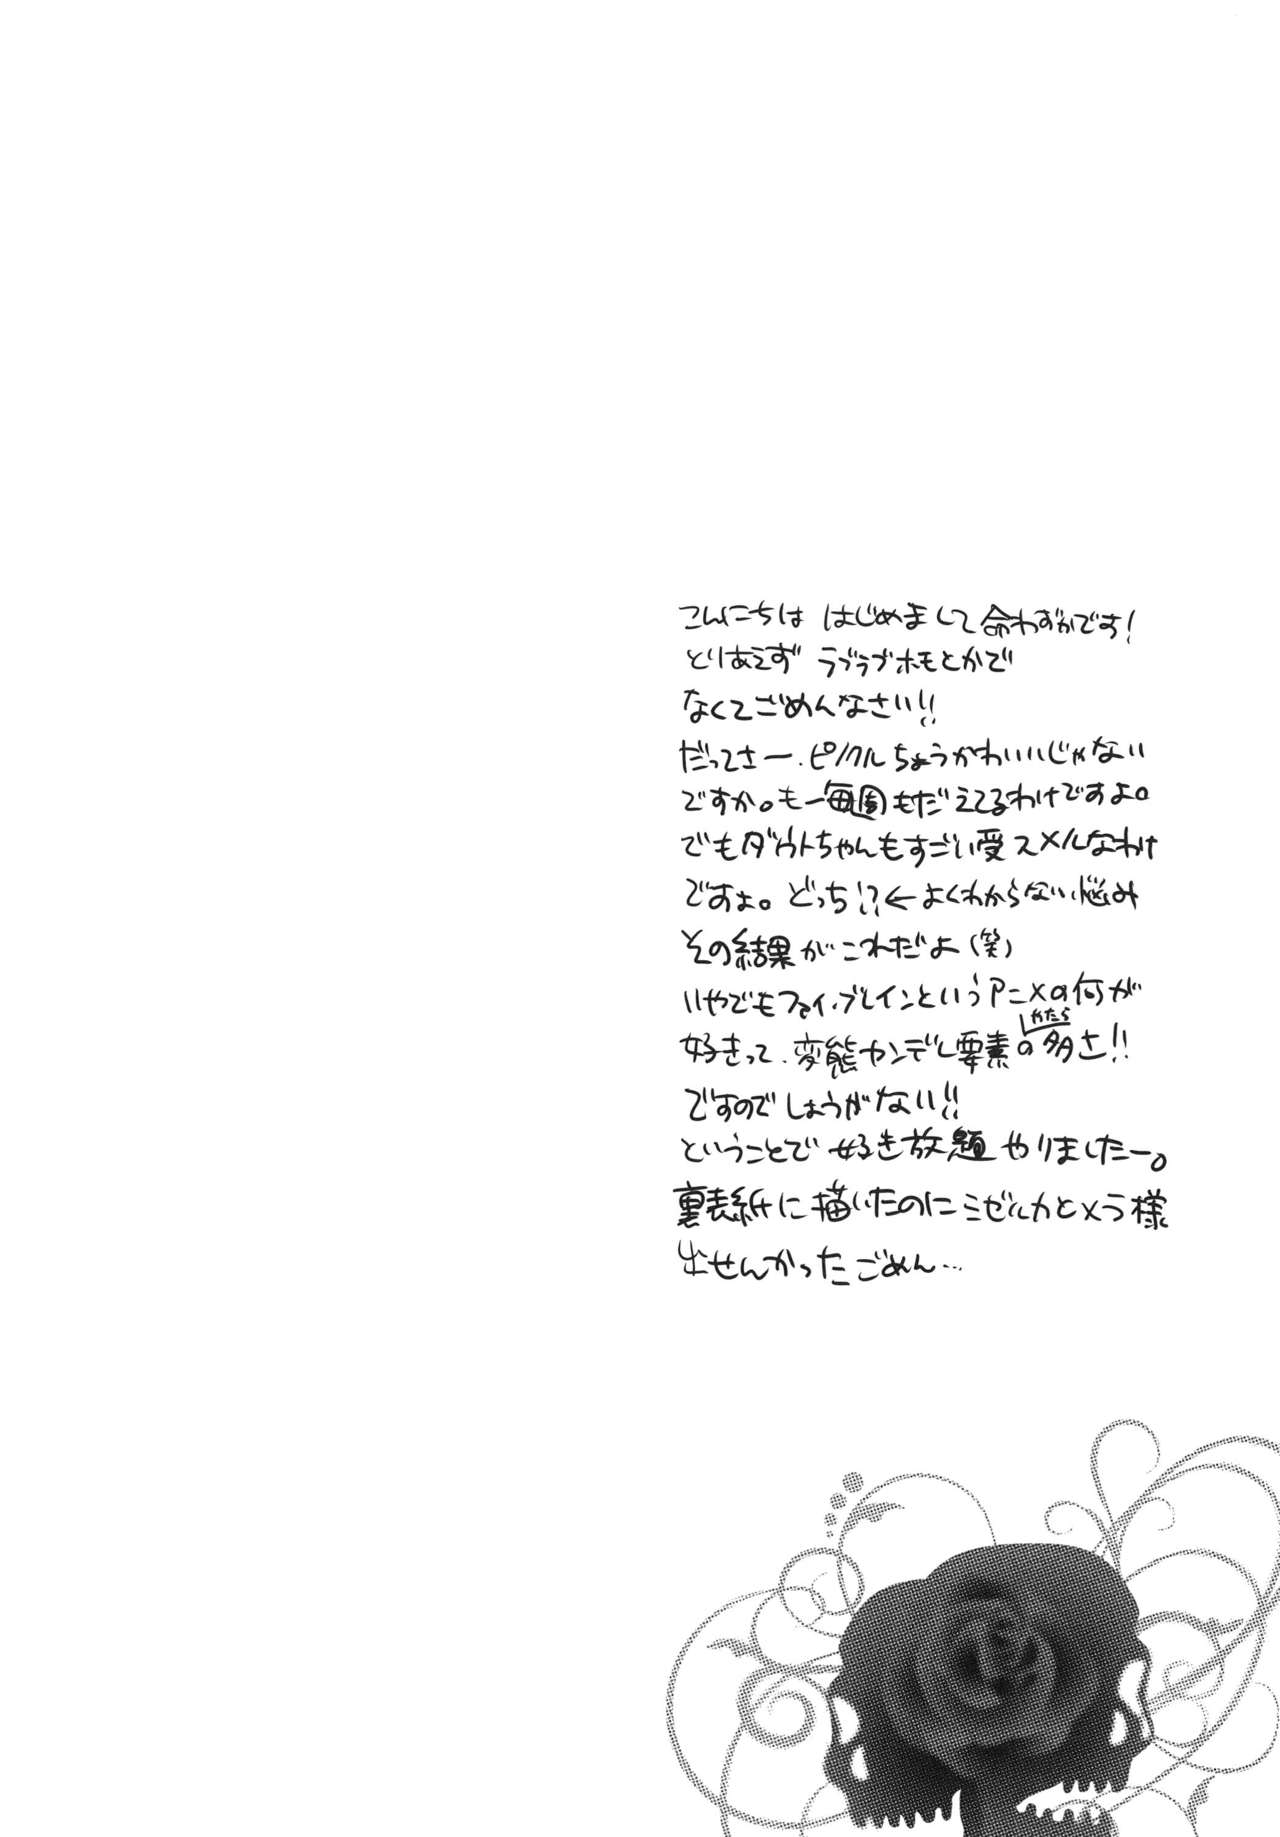 こんにちは はじめまして 命わずかです!
とりあえず ラブラブホモとかで
なくてごめんなさい!!
だってさー、ピノクルちょうかわいいじゃない
ですか。もー毎週もだえてるわけですよ。
でもダウトちゃんもすごい受スメルなわけ
ですよ。どっち!?←よくわからない悩み
その結果がこれだよ(笑)
いやでもファイ・ブレインというアニメの何が
好きって、変態ヤンデレ要素のやたら多さ!!
ですのでしょうがない!!
ということで 好き放題やりましたー。
裏表紙に描いたのにミゼルカとメラ様
出せんかったごめん…